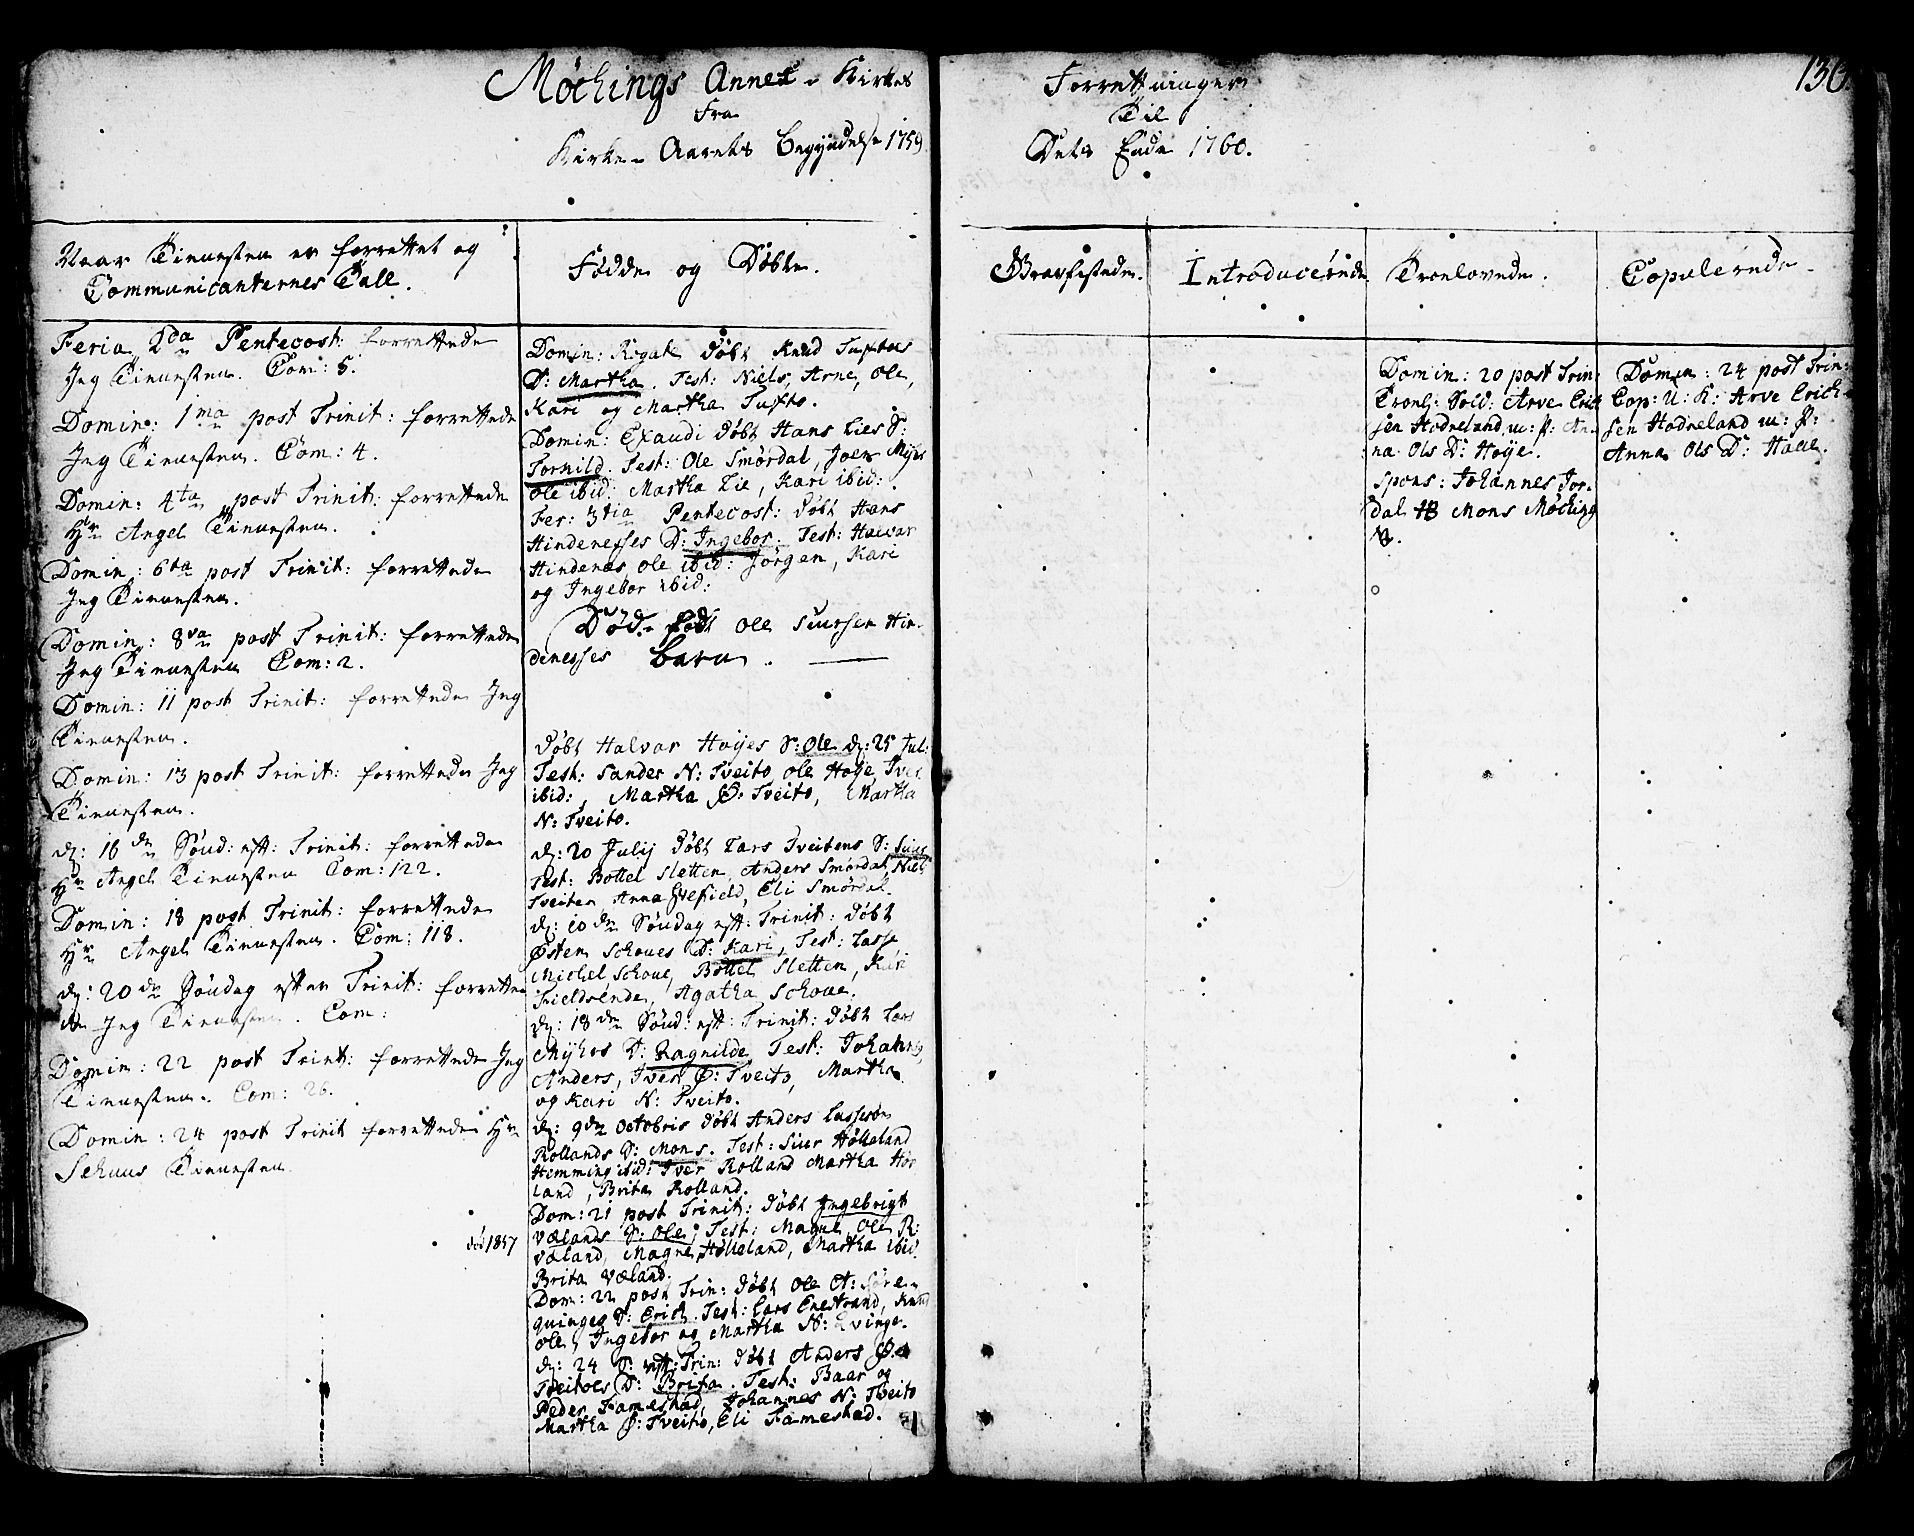 Möchings Annex Kirkes
Fra
Kirke Aarets Begyndelse 1759
Forrettninger
Til
Dets Ende 1760.
130.
Naar Tienesten er forrettet og
Communicanternes Tall.
Fødde og Døbte.
Gravfestede.
Introducerede
Troelovede.
Copulerede.
Feria 2da Pentecost: forrettede
Jeg Tienesten. Com: 5.
Domin: 1ma post Trinit: forrettede
Jeg Tienesten. Com: 4.
Domin: 4ta post Trinit: forrettede
Hr Angel Tienesten.
Domin: 6ta post Trinit: forrettede
Jeg Tienesten.
Domin: 8va post Trinit: forrettede
Jeg Tienesten Com: 2.
Domin: 11 post Trinit: forrettede Jeg
Tienesten.
Domin: 13 post Trinit: forrettede Jeg
Tienesten.
d: 16de Sönd: eft: Trinit: forrettede
Hr Angel Tienesten Com: 122.
Domin: 18 post Trinit: forrettede
Hr Angel Tienesten. Com: 118.
d: 20de Söndag efter Trinit: forrette
de Jeg Tienesten. Com:
Domin: 22 post Trinit: forrettede Jeg
Tienesten. Com: 26.
Domin: 24 post Trinit forrettede Hr
Schuus Tienesten
död 1857
Domin: Rogate döbt Knud Tuftes
D: Martha. Test: Niels, Arne, Ole,
Kari og Martha Tufto.
Domin: Exaudi döbt Hans Lies D:
Tornild. Test: Ole Smördal, Joen
Ole ibid: Martha Lie, Kari ibid:
Fer: 3tia Pentecost: döbt Hans
Hindenesses D: Ingebor. Test: Halvar
Hindenes Ole ibid: Jörgen, Kari
og Ingebor ibid:
Död-född Ole Siursen Hin-
denesses barn.
Döbt Halvar Höyes S: Ole d: 25 Jul:
Test: Sander N: Tveito, Ole Höye, Iver
ibid:, Martha Ø: Tveito, Martha
N: Tveito.
d: 20 Julij döbt Lars Tveitens S: Siur
Test: Bottel Sletten, Anders Smördal, Niels
Tveiten Anna, Eli Smördal.
d: 10de Söndag eft: Trinit: döbt
Østen Schoues D: Kari, Test: Lasse
Michel Schoue, Bottel Sletten, Kari
Fieldsende, Agatha Schoue.
d: 18de Sönd: eft: Trinit: döbt Lars
Myhres D: Ragnilde Test: Johannes,
Anders, Iver Ø: Tveito, Martha
og Kari N: Tveito.
d: 9de Octobris döbt Anders Lassesön
Rollands S: Mons. Test: Siur Hölleland
Hemming ibid: Iver Rolland Martha Höl
land, Brita Rolland.
Dom: 21 post Trinit: döbt Ingebrigt
Vælands S: Ole, Test: Magne, Ole R:
Væland, Magne Hölleland, Martha ibid.
Brita Væland.
Dom: 22 post Trin: döbt Ole A: Söre-
quinges S: Erich. Test: Lars Enestrand, Knud
Ole, Ingebor og Martha N: Qvinge.
d: 24 S: eft: Trin: döbt Anders Ø:
Tveitoes D: Brita. Test: Baar og
Peder Fameshad, Johannes N: Tveito
Martha Ø: Tveito, Eli Fameshad.
Domin: 20 post Trin:
Troel: Sold: Arve Erich
sen Hodneland m: p: An-
na Ols D: Höye.
Spons: Johannes Jor-
dal Mons Möching
Domin: 24 post Trin:
Cop: U: K: Arve Erich
sen Hodneland m: p:
Anna Ols D: